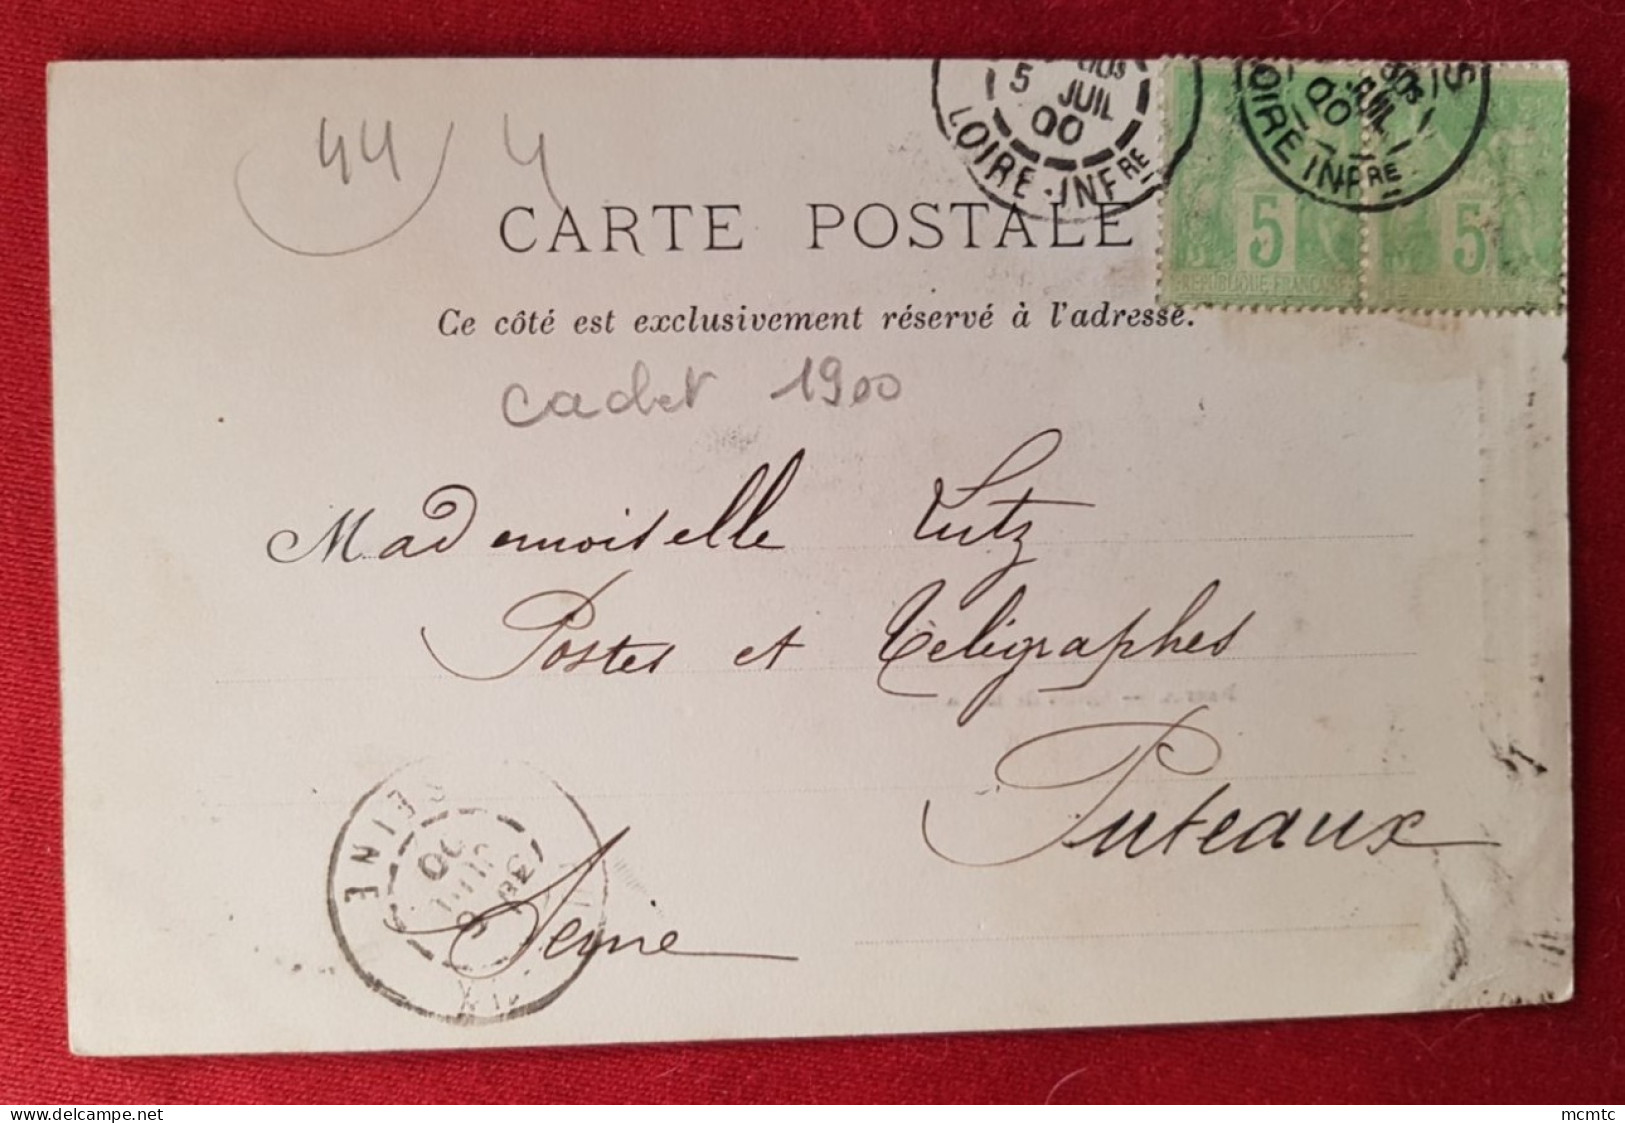 44 4
5 JUIL 00
LOIRE-INFRE
5 5
REPUBLIQUE FRANÇAISE
JUIL 00
LOIRE INFRE
CARTE POSTALE
Ce côté est exclusivement réservé à l'adresse.
cadet 1900
Mademoiselle Lutz
Postes et Télégraphes
Puteaux
Seine
SEINE
www.delcampe.net
mcmtc